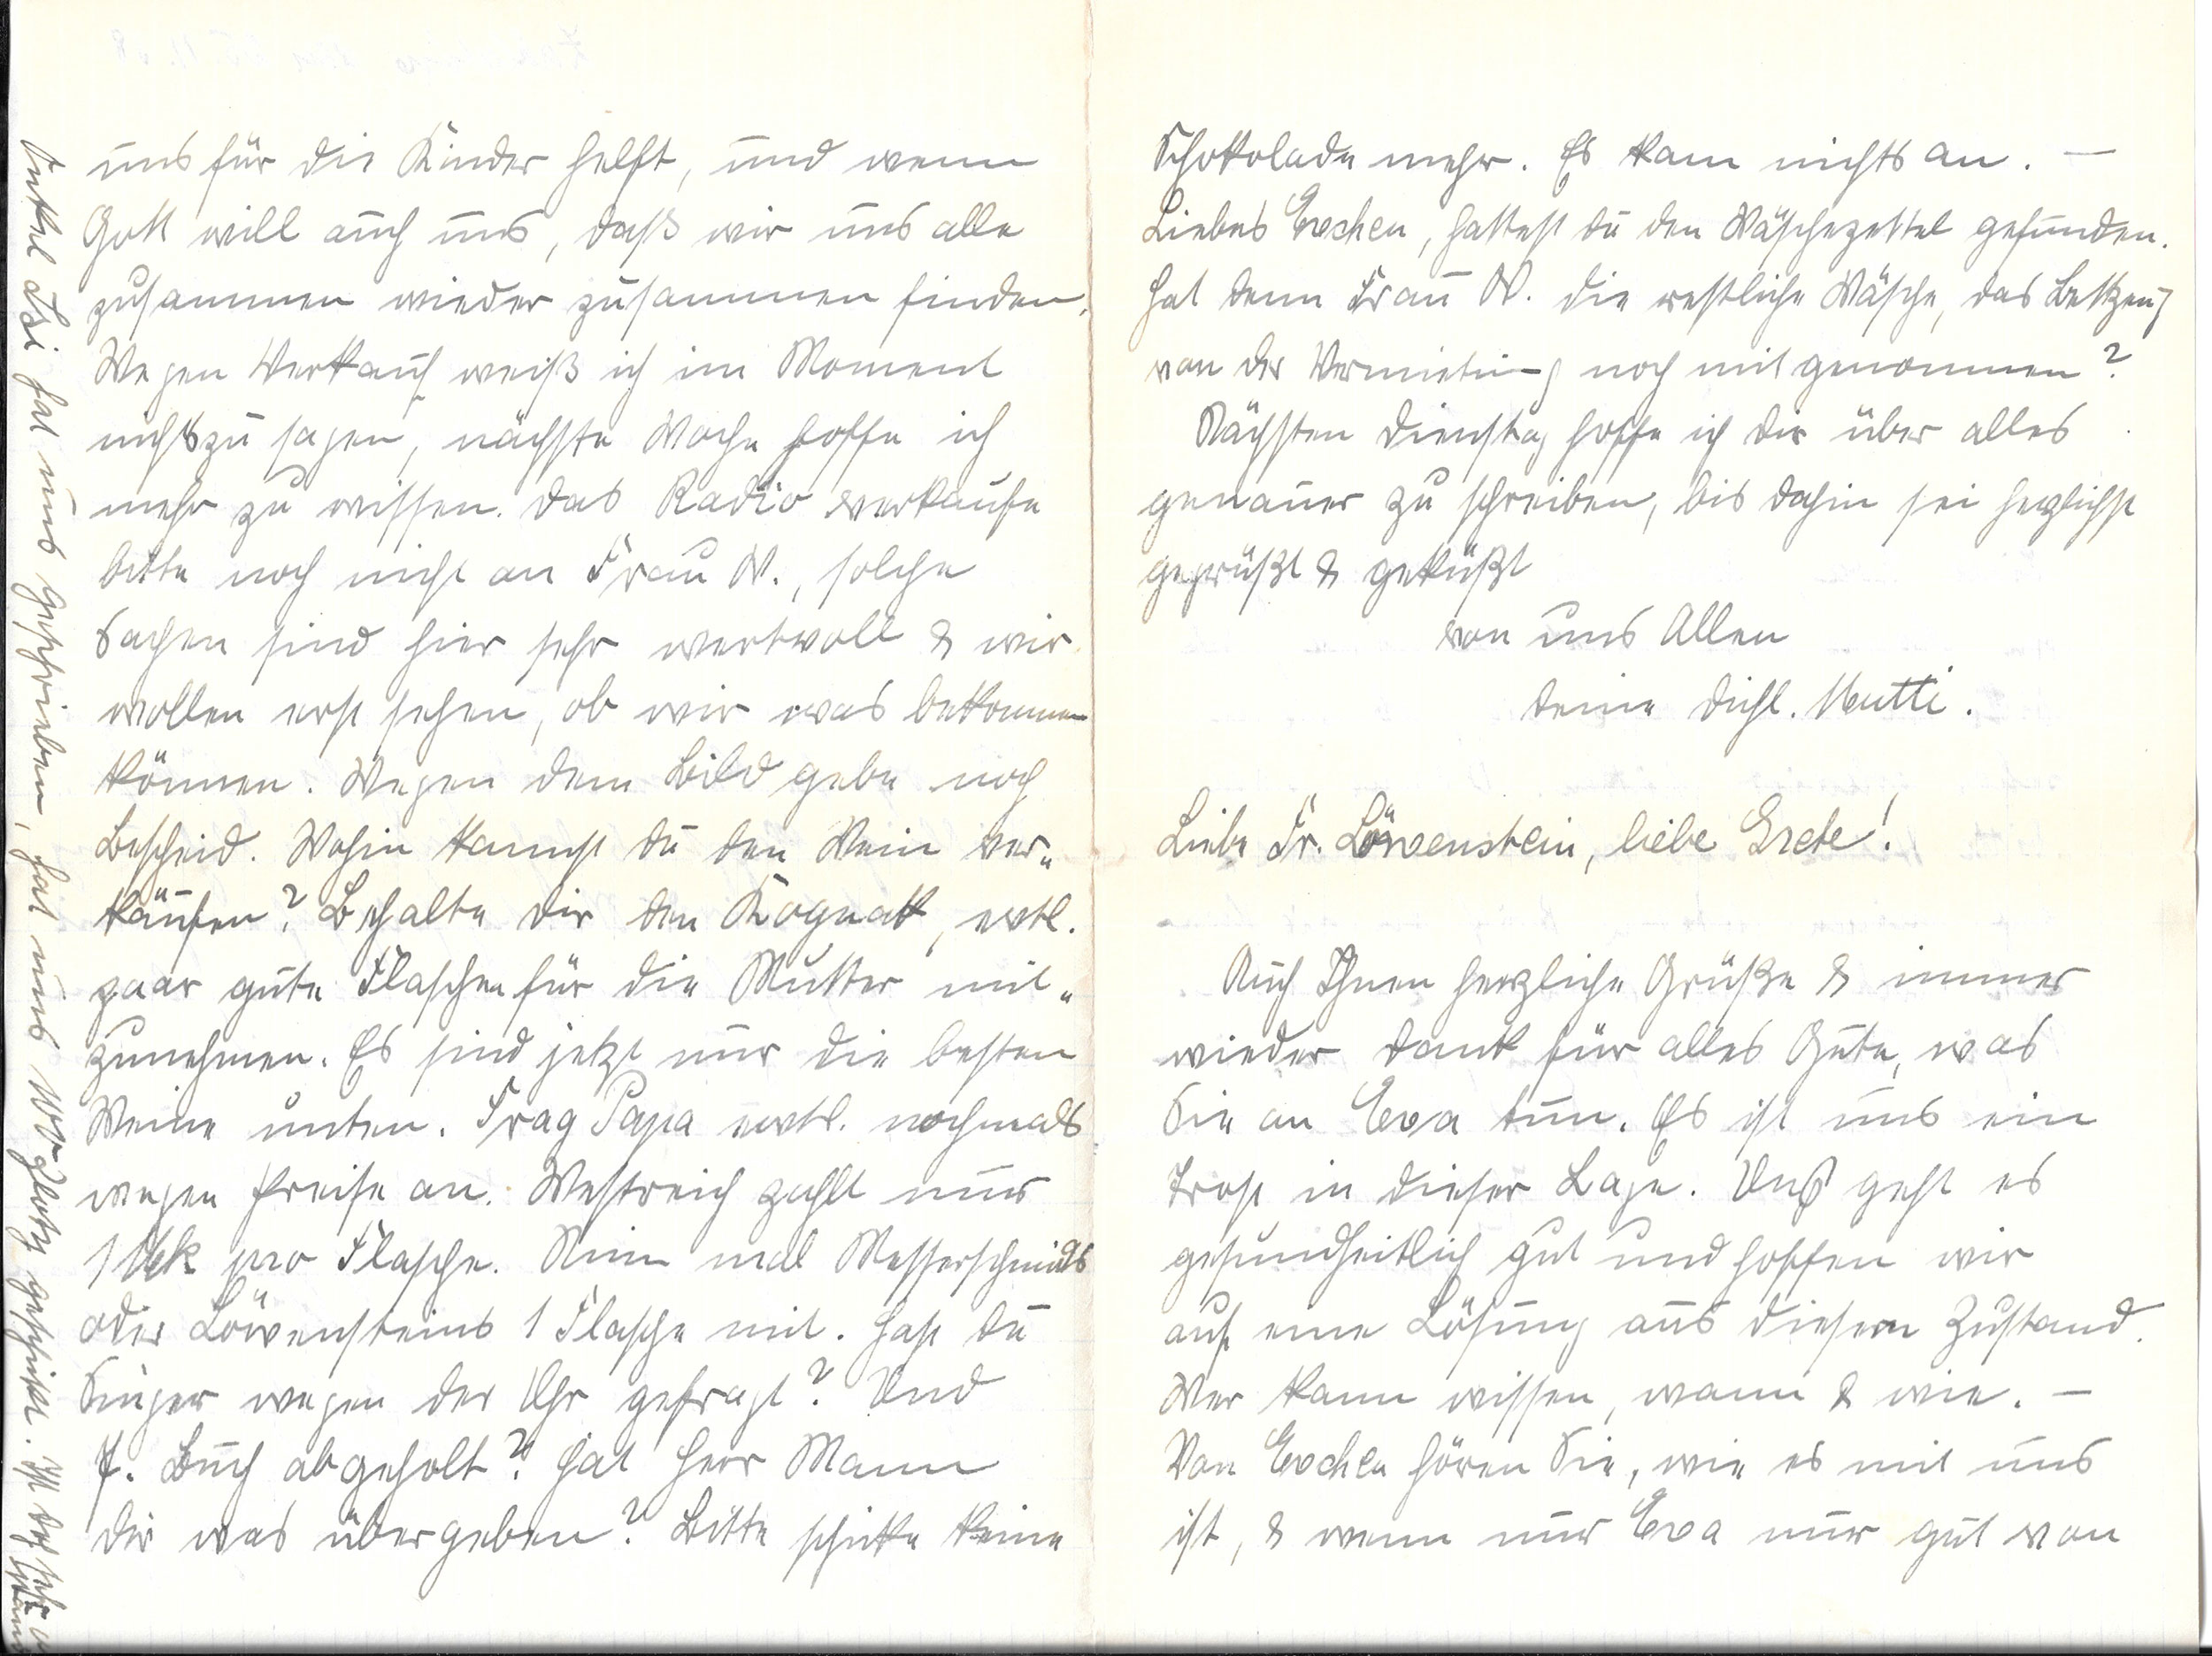 uns für die Kinder helft, und wenn
Gott will auch uns, daß wir uns alle
zusammen wieder zusammen finden.
Wegen Verkauf weiß ich im Moment
nichts zu sagen, nächste Woche hoffe ich
mehr zu wissen. Das Radio verkaufe
bitte noch nicht an Frau W., solche
Sachen sind hier sehr wertvoll & wir
wollen erst sehen, ob wir was bekommen
können. Wegen dem Bild gebe noch
Bescheid. Wohin kannst du den Wein ver-
käufen? Behalte dir den Kognak, evtl.
paar gute Flaschen für die Mutter mit-
zunehmen. Es sind jetzt nur die besten
Weine unten. Frag Papa evtl. nochmals
wegen Preise an. Westreich zahlt nur
1 Mk pro Flasche. Nim mal Messerschmids
oder Löwensteins 1 Flasche mit. Hast du
Singer wegen der Uhr gefragt? Und
J. Buch abgeholt? Hat Herr Mann
dir was übergeben? Bitte schicke keine
Onkel Isi hat uns geschrieben, hat uns 100 Zloty geschickt. Ist doch sehr
Schokolade mehr. Es kam nichts an. —
Liebes Evchen, hattest du den Wäschezettel gefunden.
Hat denn Frau W. die restliche Wäsche, das Bettzeug
von der Vermietung noch mitgenommen?
Nächsten Dienstag hoffe ich dir über alles
genauer zu schreiben, bis dahin sei herzlichst
gegrüßt & geküßt
von uns Allen
deine dichl. Mutti.
Liebe Fr. Löwenstein, liebe Grete!
Auch Ihnen herzliche Grüße & immer
wieder Dank für alles Gute, was
Sie an Eva tun. Es ist uns ein
Trost in dieser Lage. Uns geht es
gesundheitlich gut und hoffen wir
auf eine Lösung aus diesem Zustand.
Wer kann wissen, wann & wie. —
Von Evchen hören Sie, wie es mit uns
ist, & wenn nur Eva nur gut von